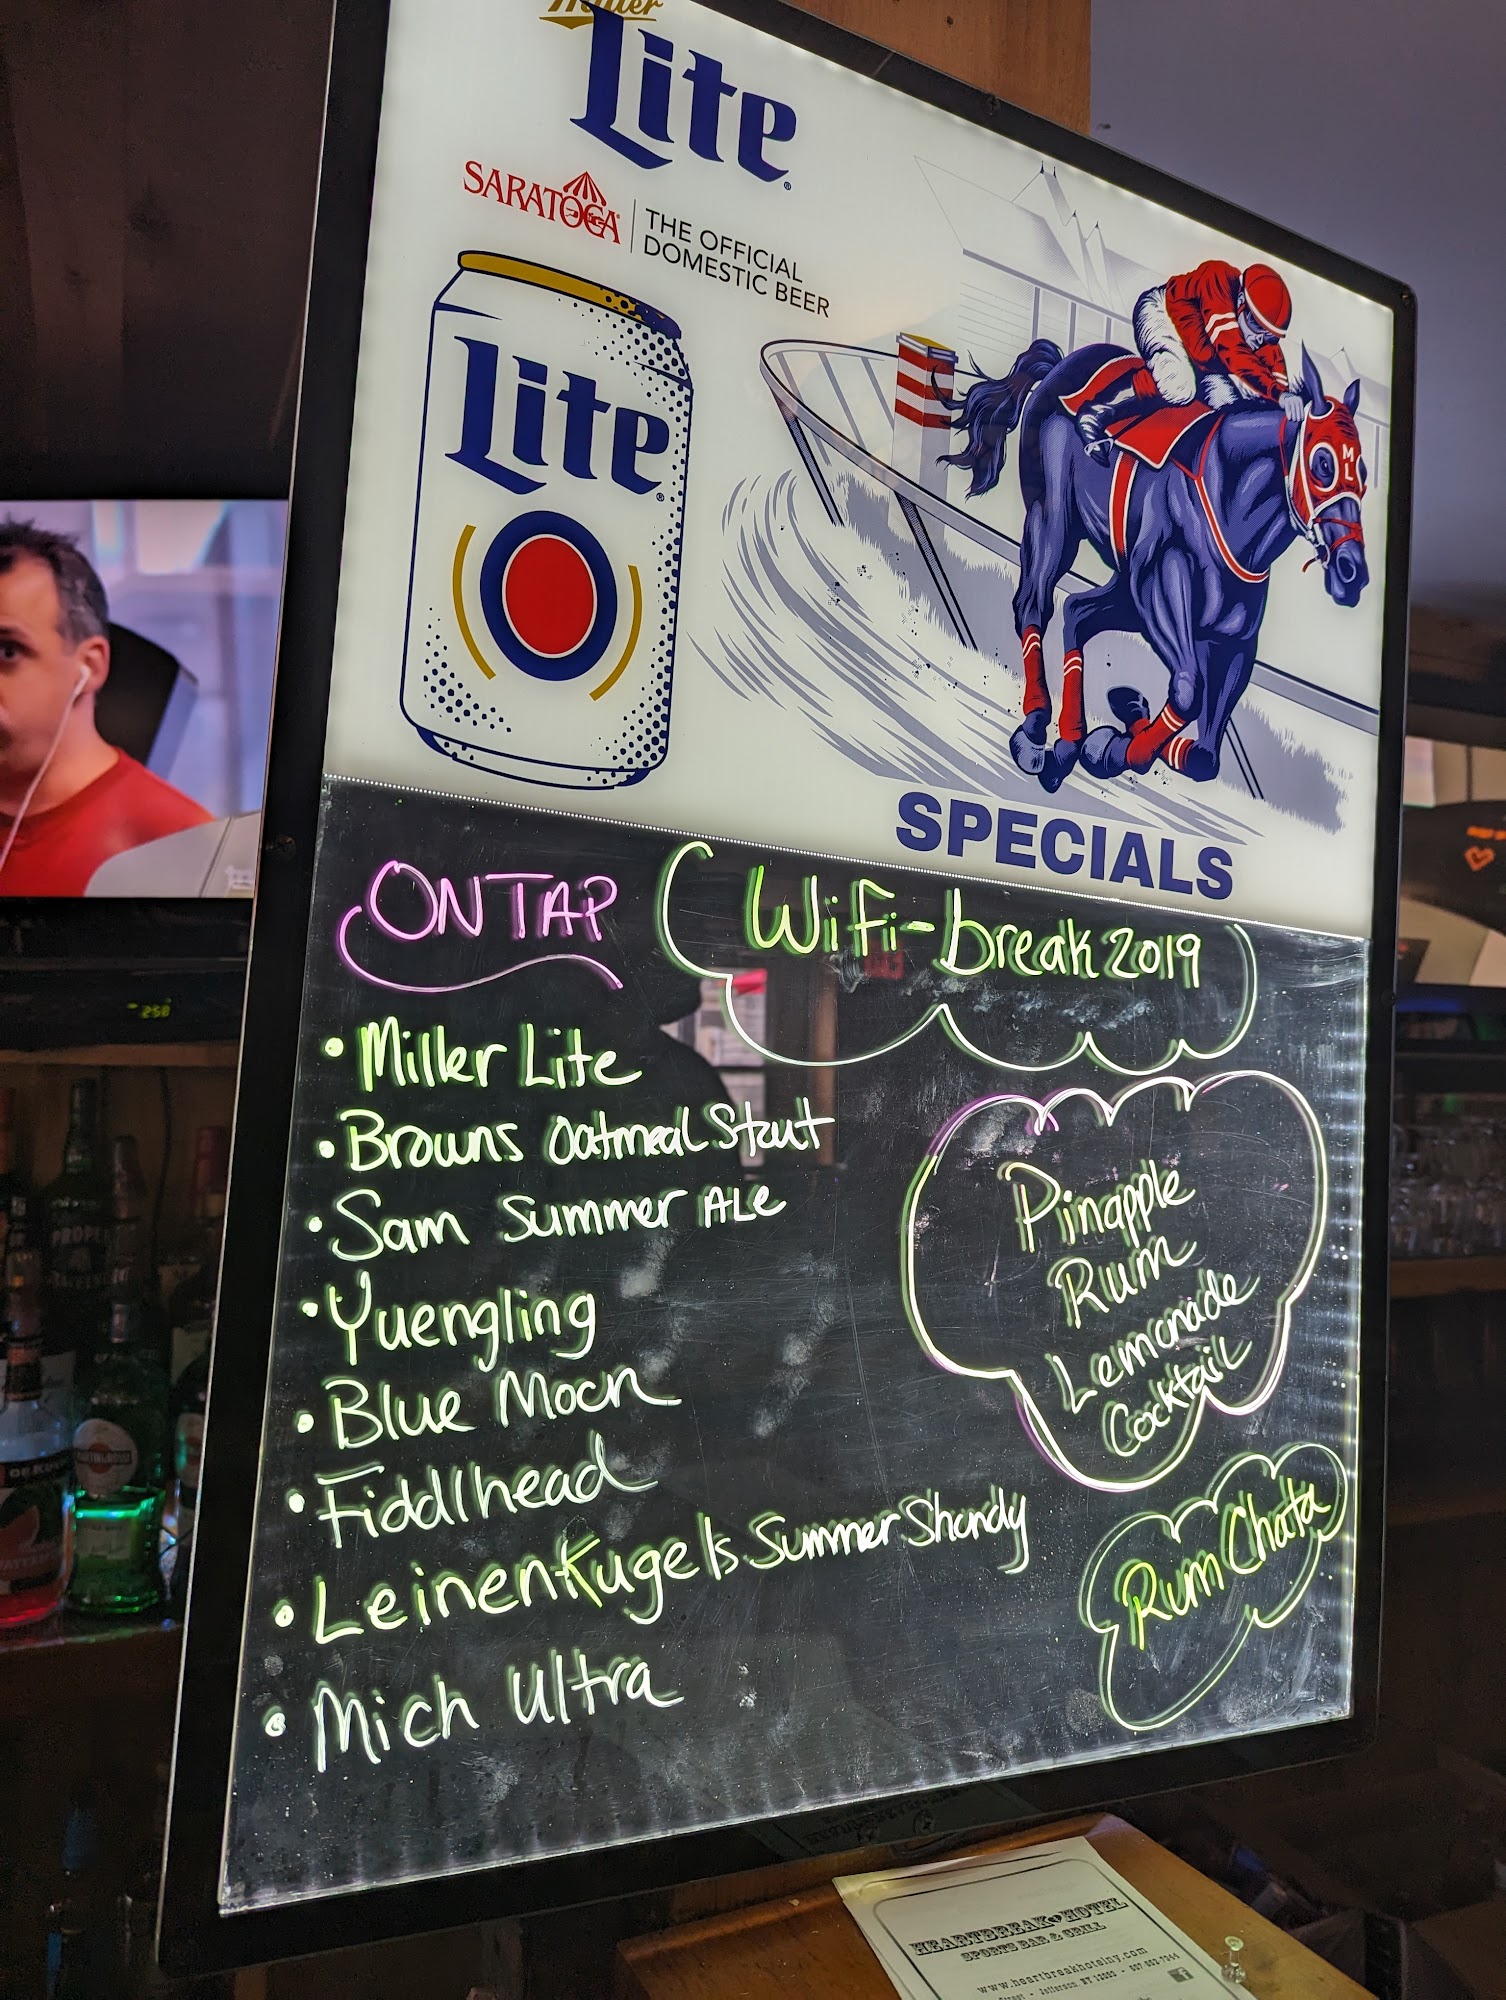 Miller
Lite
SARATOGA
THE OFFICIAL
DOMESTIC BEER
Lite
ML
SPECIALS
ON TAP
WiiFii-break2019
• Miller Lite
• Browns Oatmeal Stout
• Sam Summer ALe
• Yuengling
• Blue Moon
• Fiddlhead
• LeinenKugels Summer Shandy
• Mich Ultra
Piinapple
Rum
Lemonade
Cocktail
RumChata
HEARTBREAK HOTEL
SPORTS BAR & GRILL
www.heartbreakhotelny.com